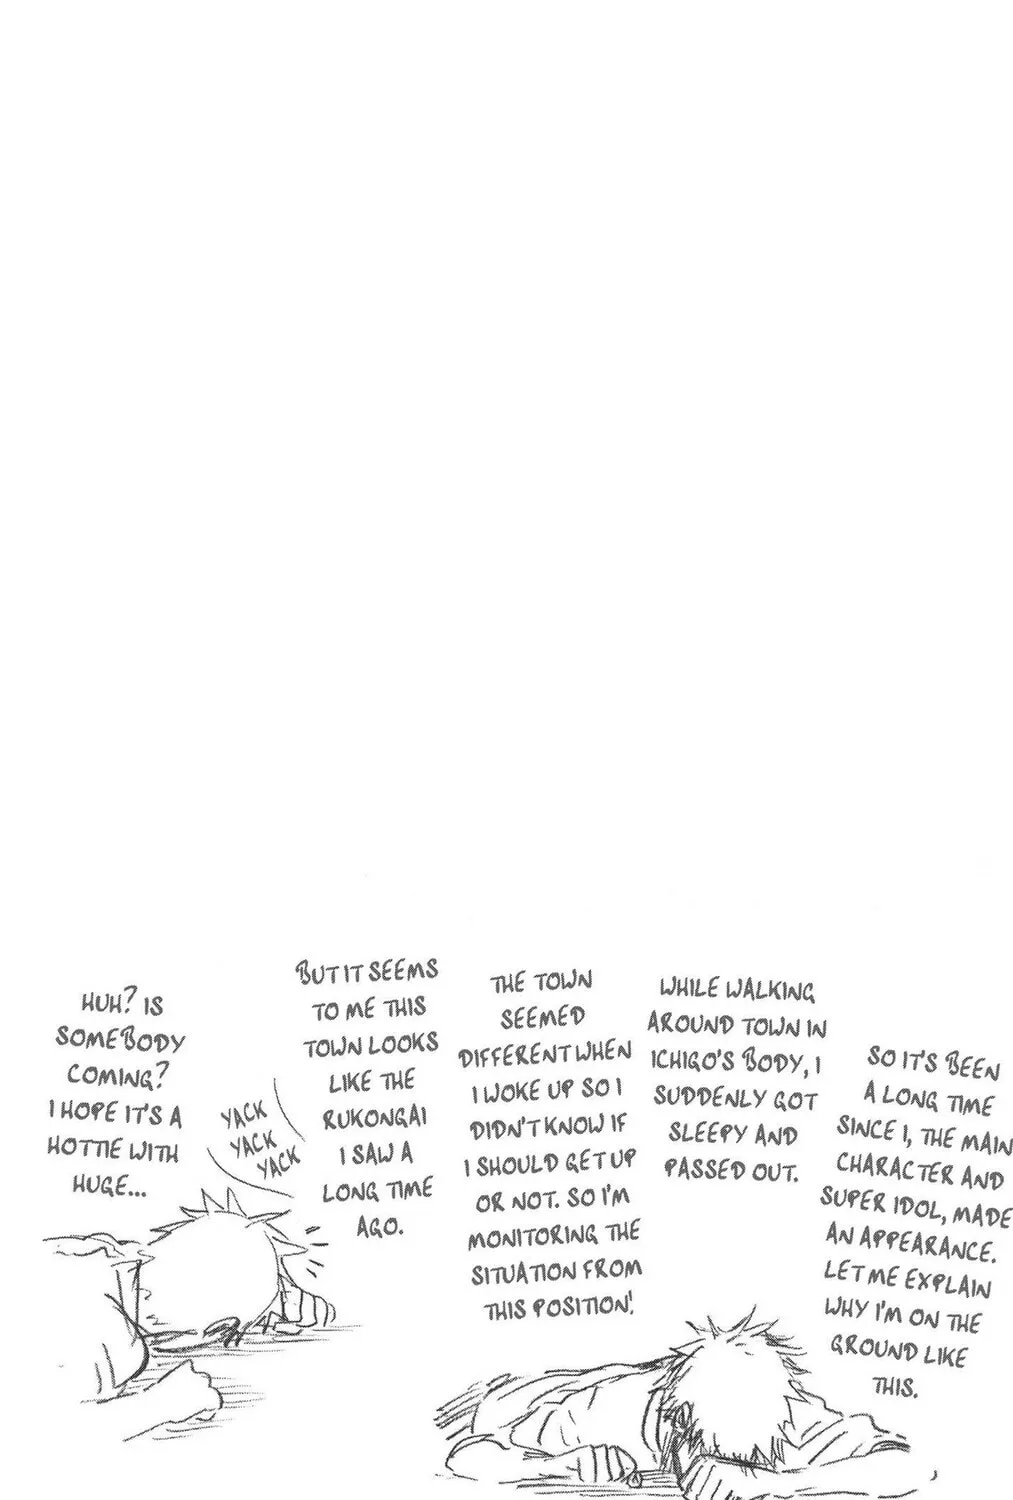 SO IT'S BEEN
A LONG TIME
SINCE I, THE MAIN
CHARACTER AND
SUPER IDOL, MADE
AN APPEARANCE.
LET ME EXPLAIN
WHY I'M ON THE
GROUND LIKE
THIS.
WHILE WALKING
AROUND TOWN IN
ICHIGO'S BODY, I
SUDDENLY GOT
SLEEPY AND
PASSED OUT.
THE TOWN
SEEMED
DIFFERENT WHEN
I WOKE UP SO I
DIDN'T KNOW IF
I SHOULD GET UP
OR NOT. SO I'M
MONITORING THE
SITUATION FROM
THIS POSITION!
BUT IT SEEMS
TO ME THIS
TOWN LOOKS
LIKE THE
RUKONGAI
I SAW A
LONG TIME
AGO.
YACK
YACK
YACK
HUH? IS
SOMEBODY
COMING?
I HOPE IT'S A
HOTTIE WITH
HUGE...